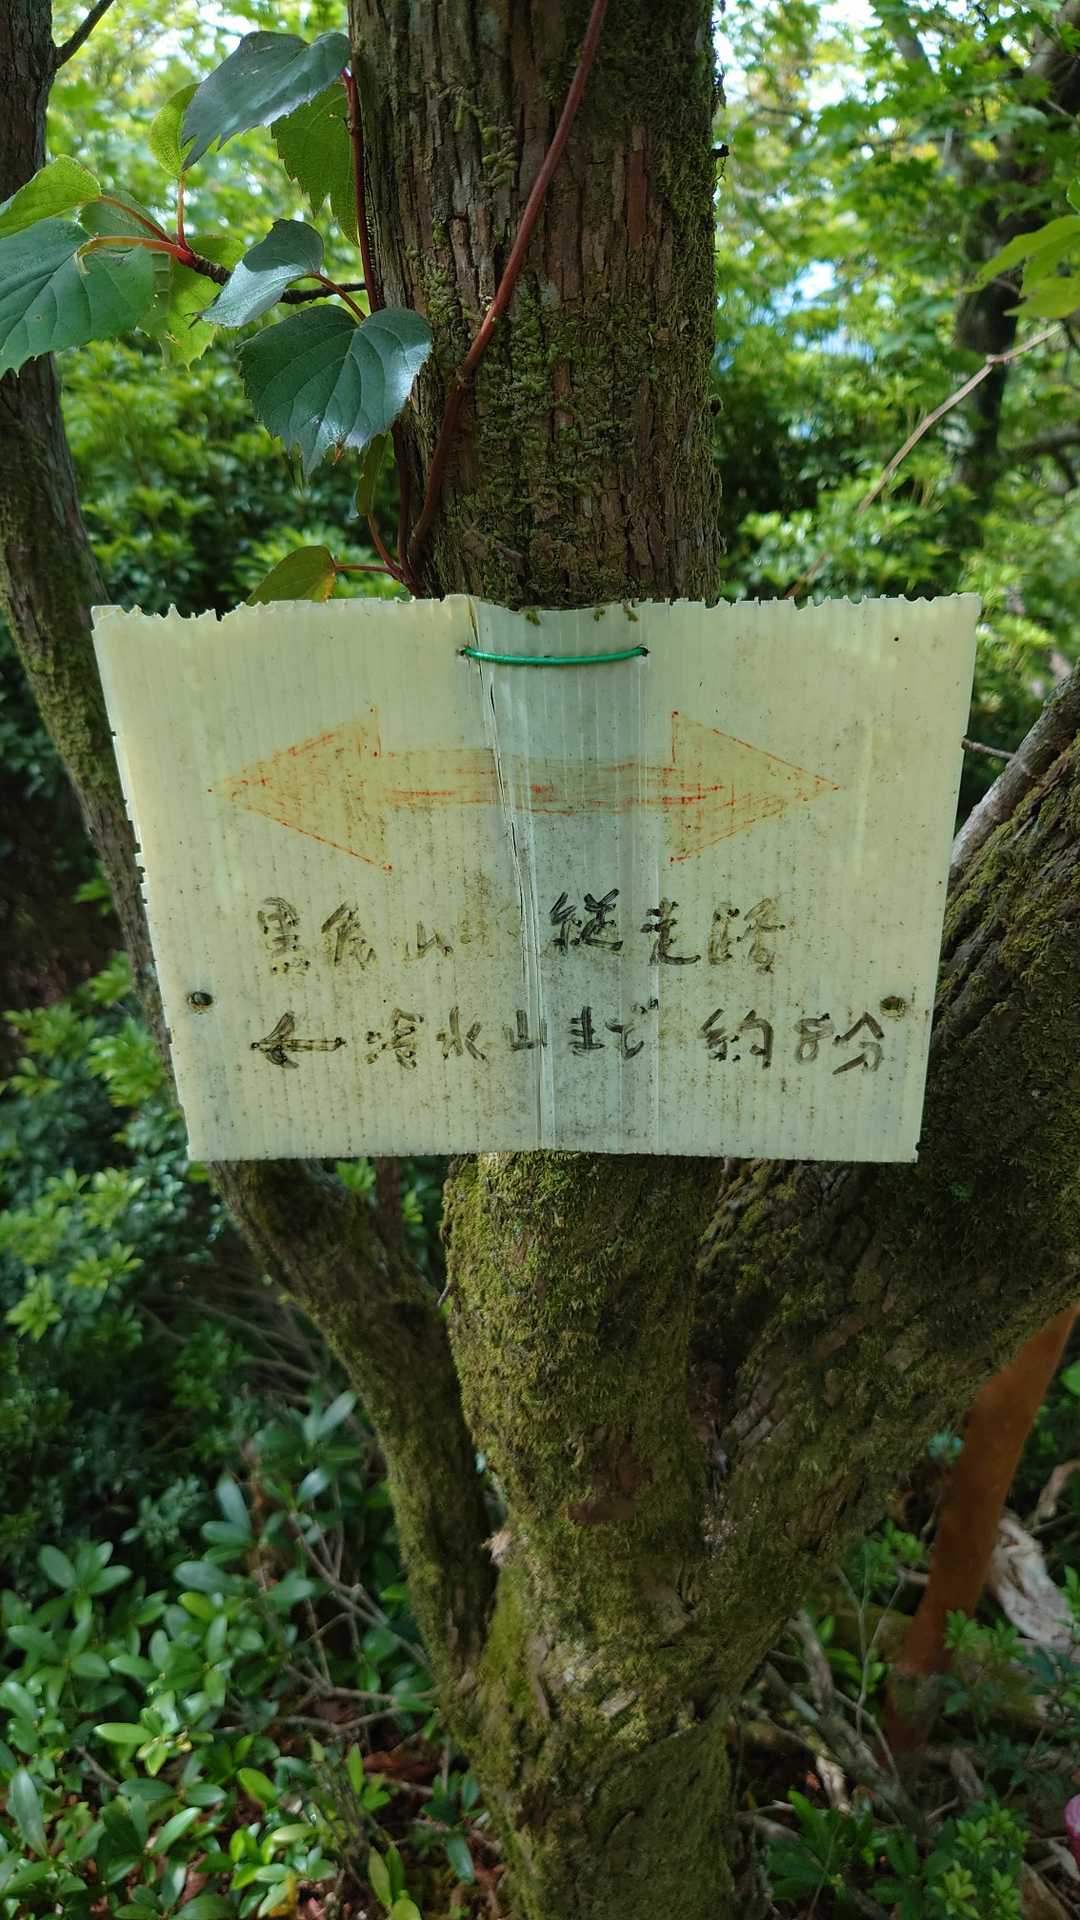 黒尾山 縦走路
← 冷水山まで 約8分